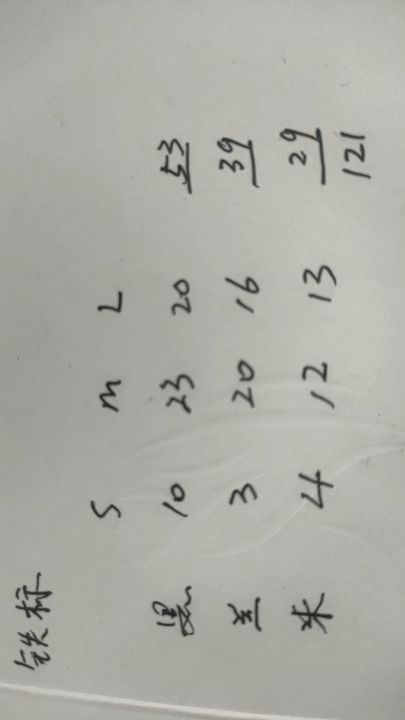 铁标
S M L
黑 10 23 20 53
兰 3 20 16 39
米 4 12 13 29
121